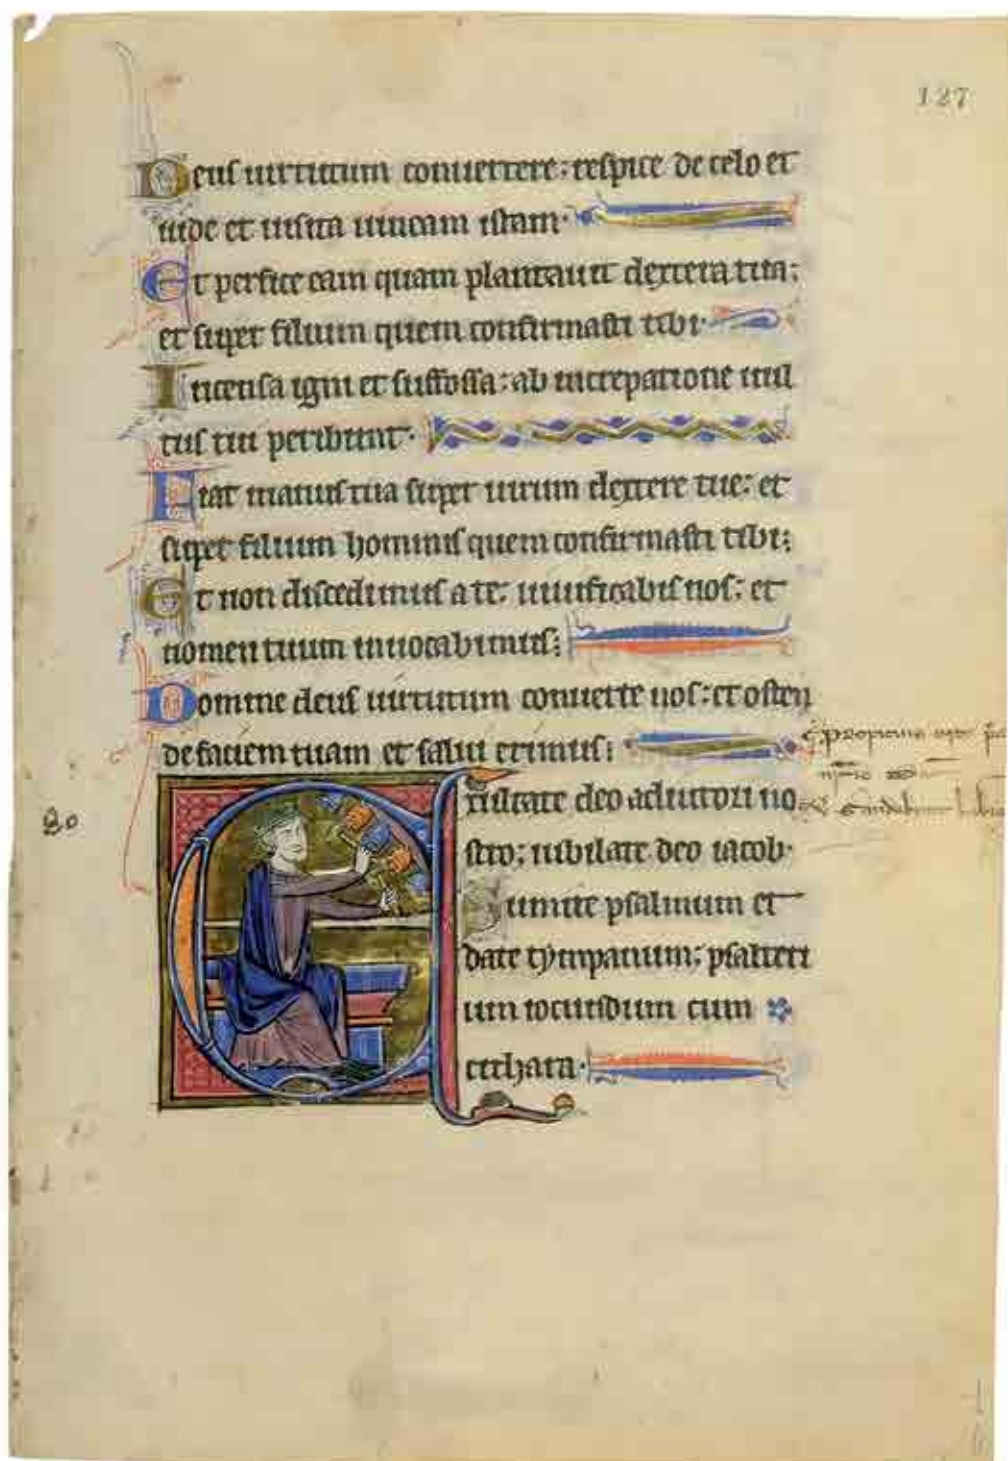 127
Deus uirtutum conuertere: respice de celo et
uide et uisita uineam istam.
Et perfice eam quam plantauit dextera tua:
et super filium quem confirmasti tibi.
Incensa igni et suffossa: ab increpatione uul
tus tui peribunt.
Fiat manus tua super uirum dextere tue: et
super filium hominis quem confirmasti tibi;
Et non discedimus a te: uiuificabis nos: et
nomen tuum inuocabimus;
Domine deus uirtutum conuerte nos: et osten
de faciem tuam et salui erimus;
80
Exultate deo adiutori no
stro; iubilate deo iacob.
Sumite psalmum et
date tympanum; psalteri
um iocundum cum
cithara.